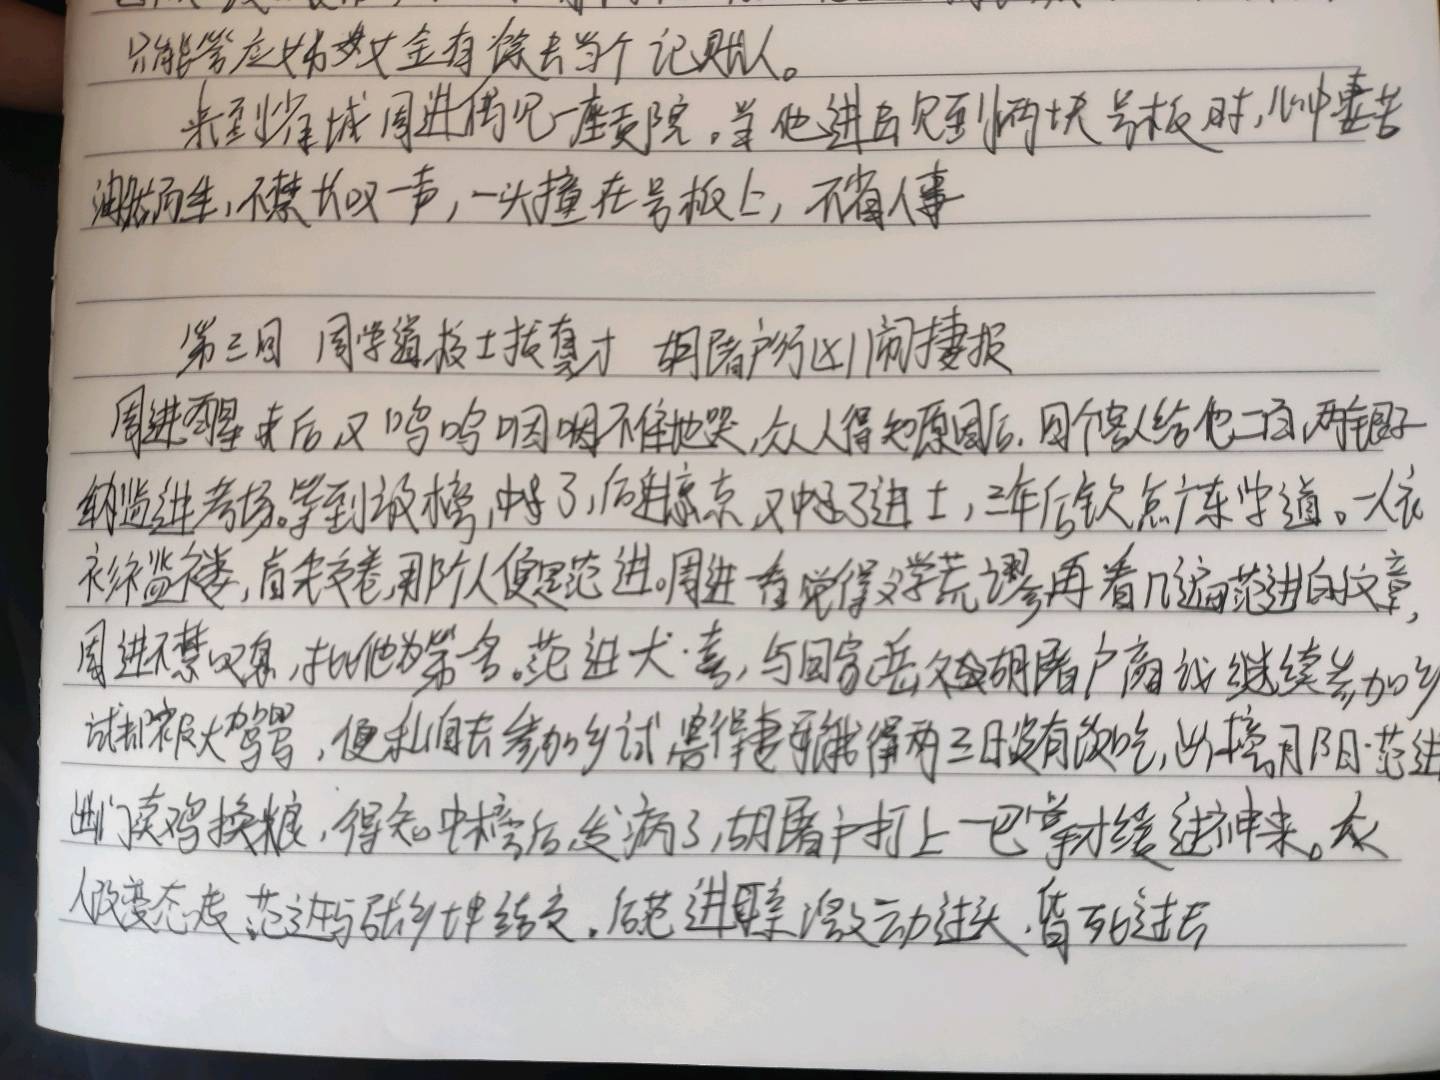 只能答应姊丈金有余去当个记账人。
来到省城周进偶见一座贡院。当他进去见到两块号板时，心中凄苦
油然而生，不禁长叹一声，一头撞在号板上，不省人事
第三回 周学道校士拔真才 胡屠户行凶闹捷报
周进醒来后又呜呜咽咽不住地哭，众人得知原因后，四个客人给他二百两银子
纳监进考场。等到放榜，中了，后进京，又中了进士，三年后钦点广东学道。一人衣
衫褴褛，首先交卷，那个人便是范进。周进看觉得文学荒谬再看几遍范进的文章，
周进不禁叹息，批他为第一名。范进大喜，与回家岳父胡屠户商议继续参加乡
试却被大骂，便私自去参加乡试害得妻子饿得两三日没有饭吃，出榜那日·范进
进门卖鸡换粮，得知中榜后发病了，胡屠户打上一巴掌才缓过神来。众
人改变态度，范进与张乡绅结交。后范进母亲激动过头，昏死过去